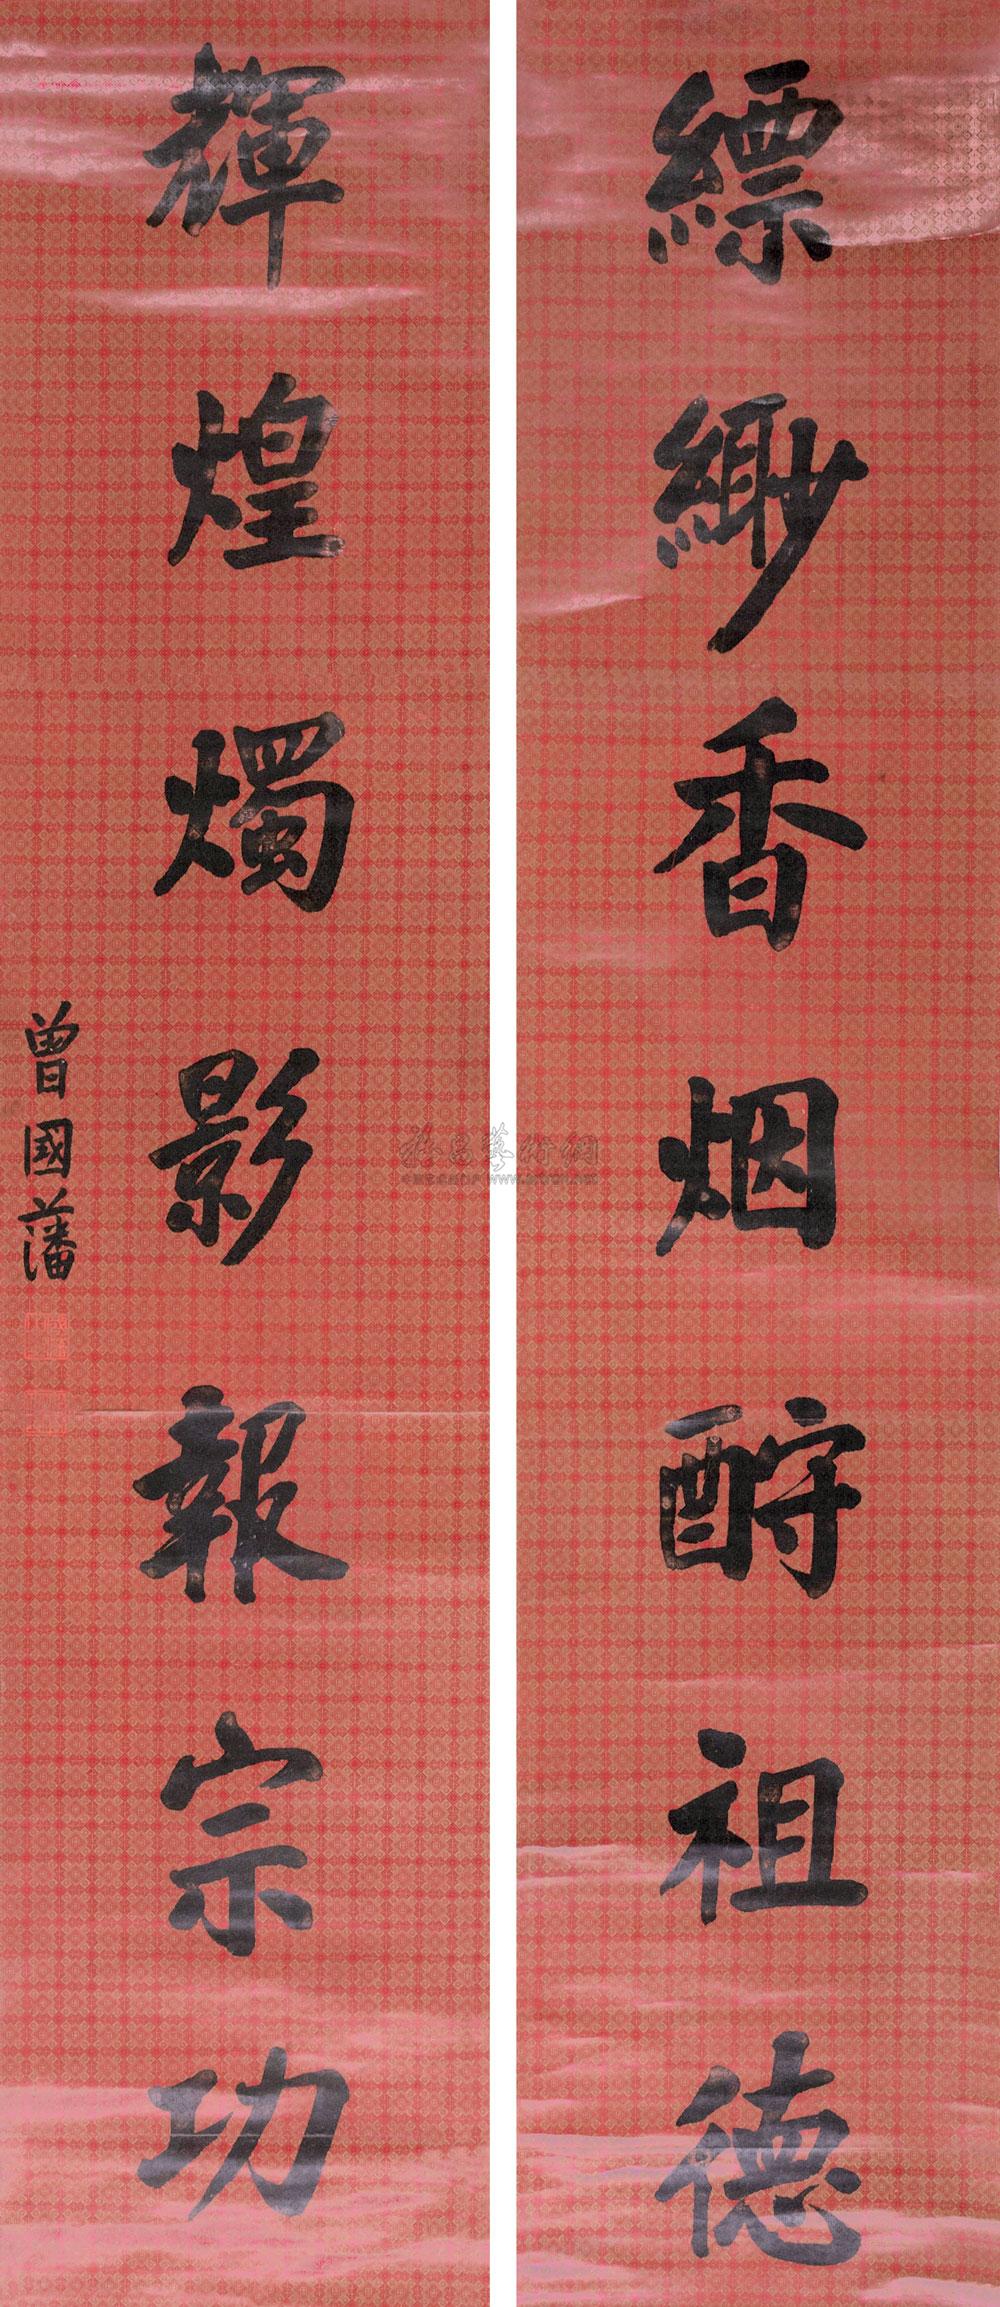 縹緲香烟酧祖德
輝煌燭影報宗功
曾國藩
雅昌藝術網